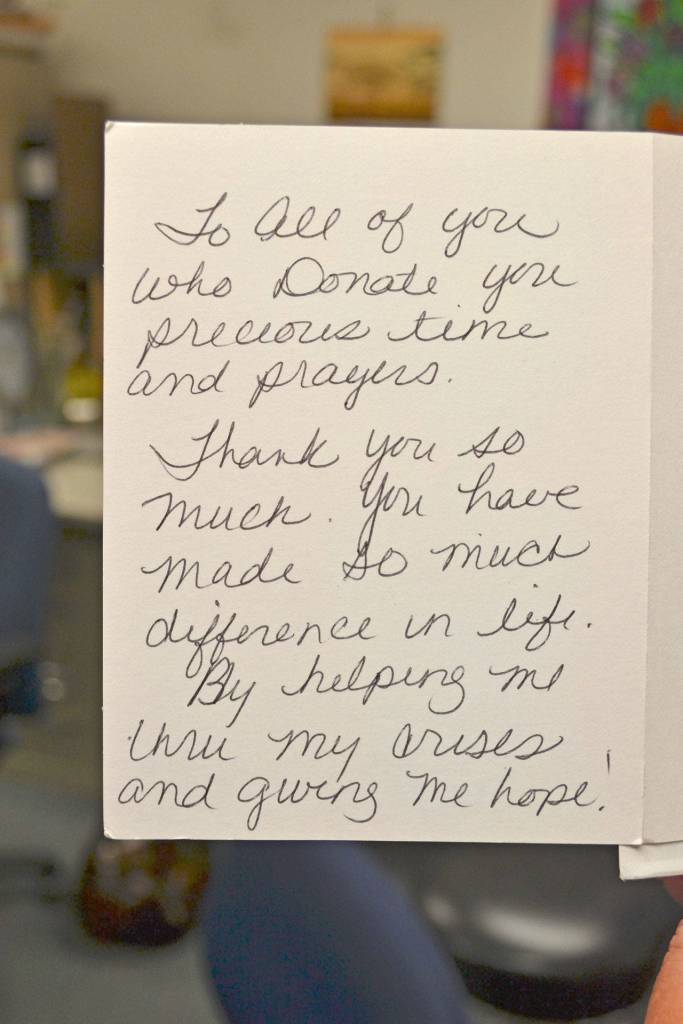 To All of you
who Donate you
precious time
and prayers.
Thank you so
much. You have
made so much
difference in life.
By helping me
thru my crises
and giving me hope!